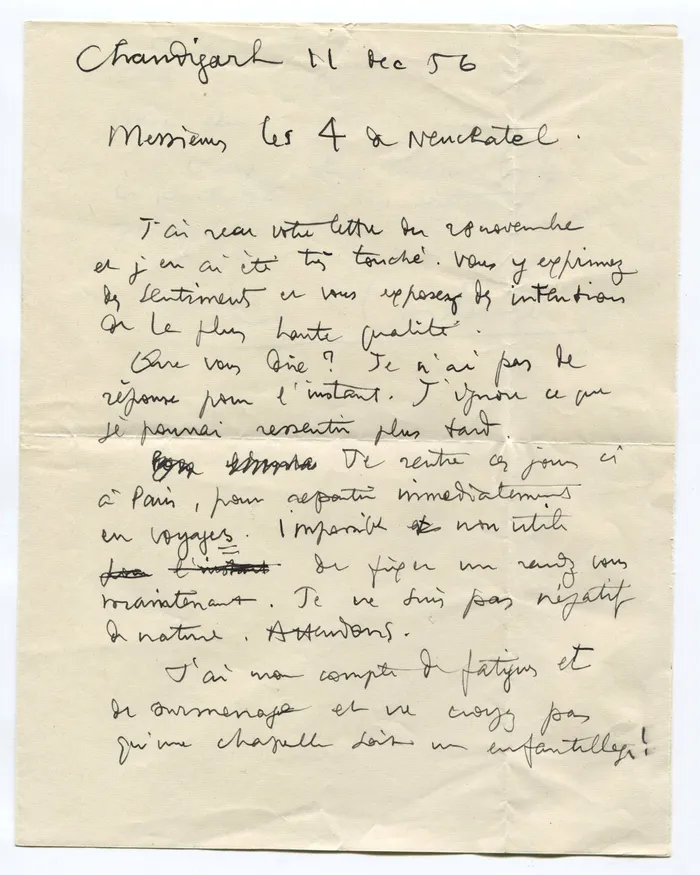 Chandigarh 11 dec 56
Messieurs les 4 de Neuchatel.
J'ai reçu votre lettre du 28 novembre
et j'en ai été très touché. Vous y exprimez
des sentiment et vous exposez des intentions
de la plus haute qualité.
Que vous dire? Je n'ai pas de
réponse pour l'instant. J'ignore ce que
je pourrai ressentir plus tard.
Je rentre ces jours ci
à Paris, pour repartir immédiatement
en voyages. Impossible et non utile
l'instant de fixer un rendez vous
maintenant. Je ne suis pas négatif
de nature. Attendons.
J'ai mon compte de fatigues et
de surmenage et ne croyez pas
qu'une chapelle soit un enfantillage!